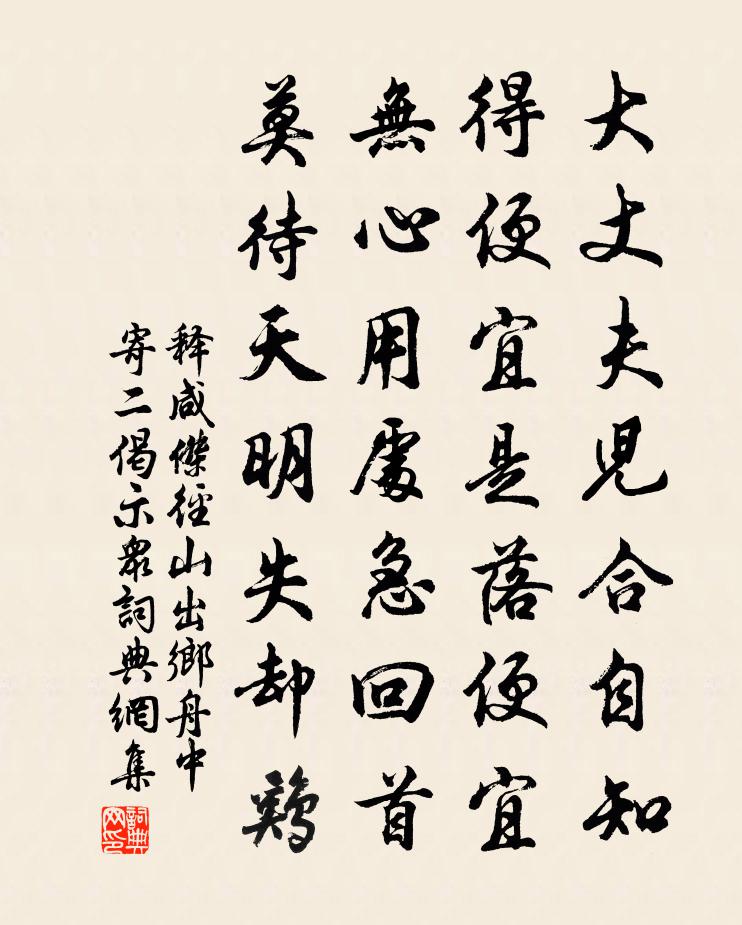 大丈夫児合自知
得便宜是落便宜
無心用處急回首
莫待天明失却鷄
释咸傑徑山出鄉舟中
寄二偈示眾詞典網集
詞典网印